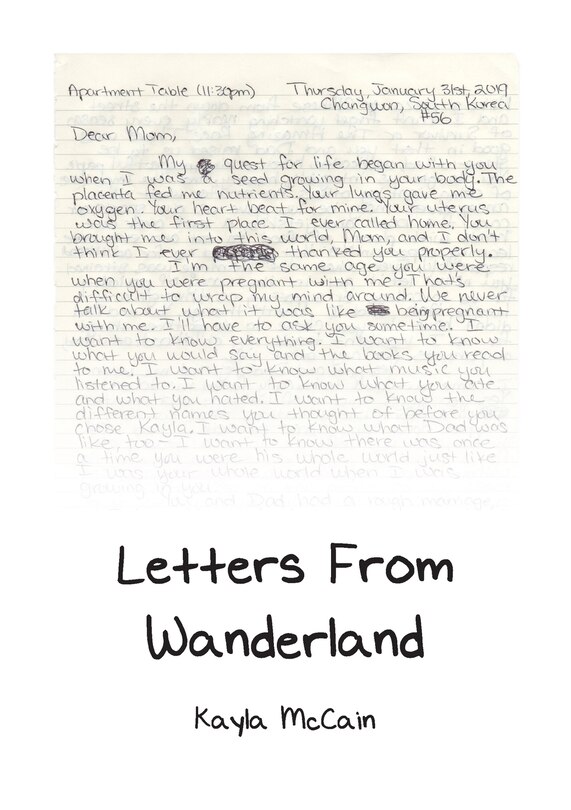 Apartment Table (11:30pm) Thursday, January 31st, 2019
Changwon, South Korea
#56
Dear Mom,
My quest for life began with you
when I was a seed growing in your body. The
placenta fed me nutrients. Your lungs gave me
oxygen. Your heart beat for mine. Your uterus
was the first place I ever called home. You
brought me into this world, Mom, and I don't
think I ever thanked you properly.
I'm the same age you were
when you were pregnant with me. That's
difficult to wrap my mind around. We never
talk about what it was like being pregnant
with me. I'll have to ask you sometime. I
want to know everything. I want to know
what you would say and the books you read
to me. I want to know what music you
listened to. I want to know what you ate
and what you hated. I want to know the
different names you thought of before you
chose Kayla. I want to know what Dad was
like, too - I want to know there was once
a time you were his whole world just like
I was your whole world when I was
growing in you.
You and Dad had a rough marriage,
Letters From
Wanderland
Kayla McCain